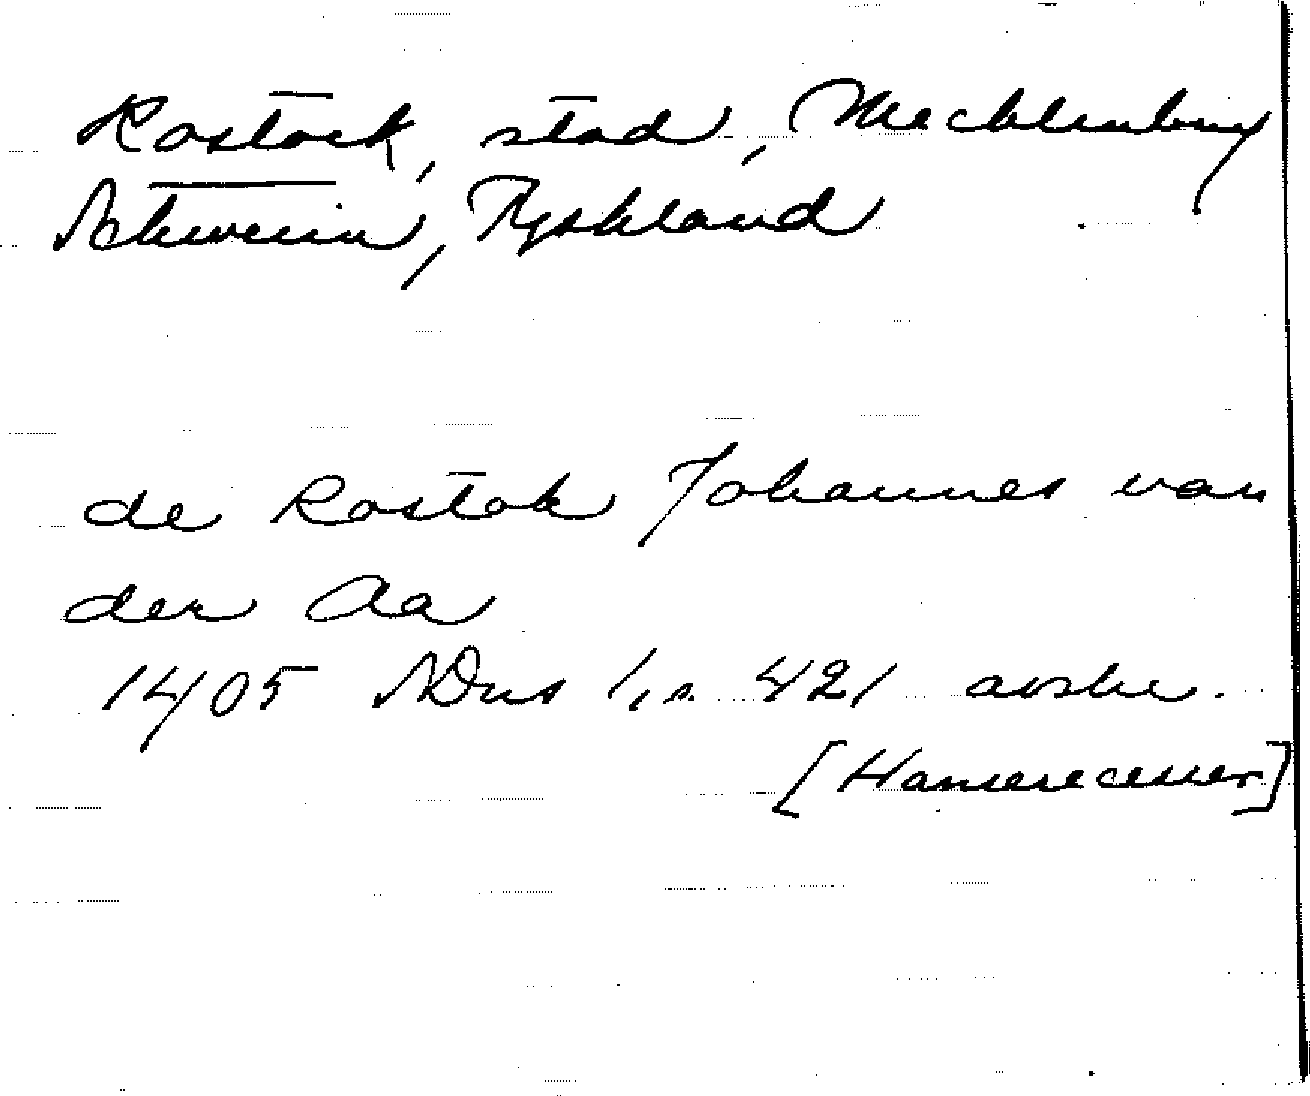 Rostock, stad, Mecklenburg
Schwerin, Tyskland
de Rostok Johannes van
der Aa
1405 SDns 1, s. 421 avskr.
[Hanserecesser]